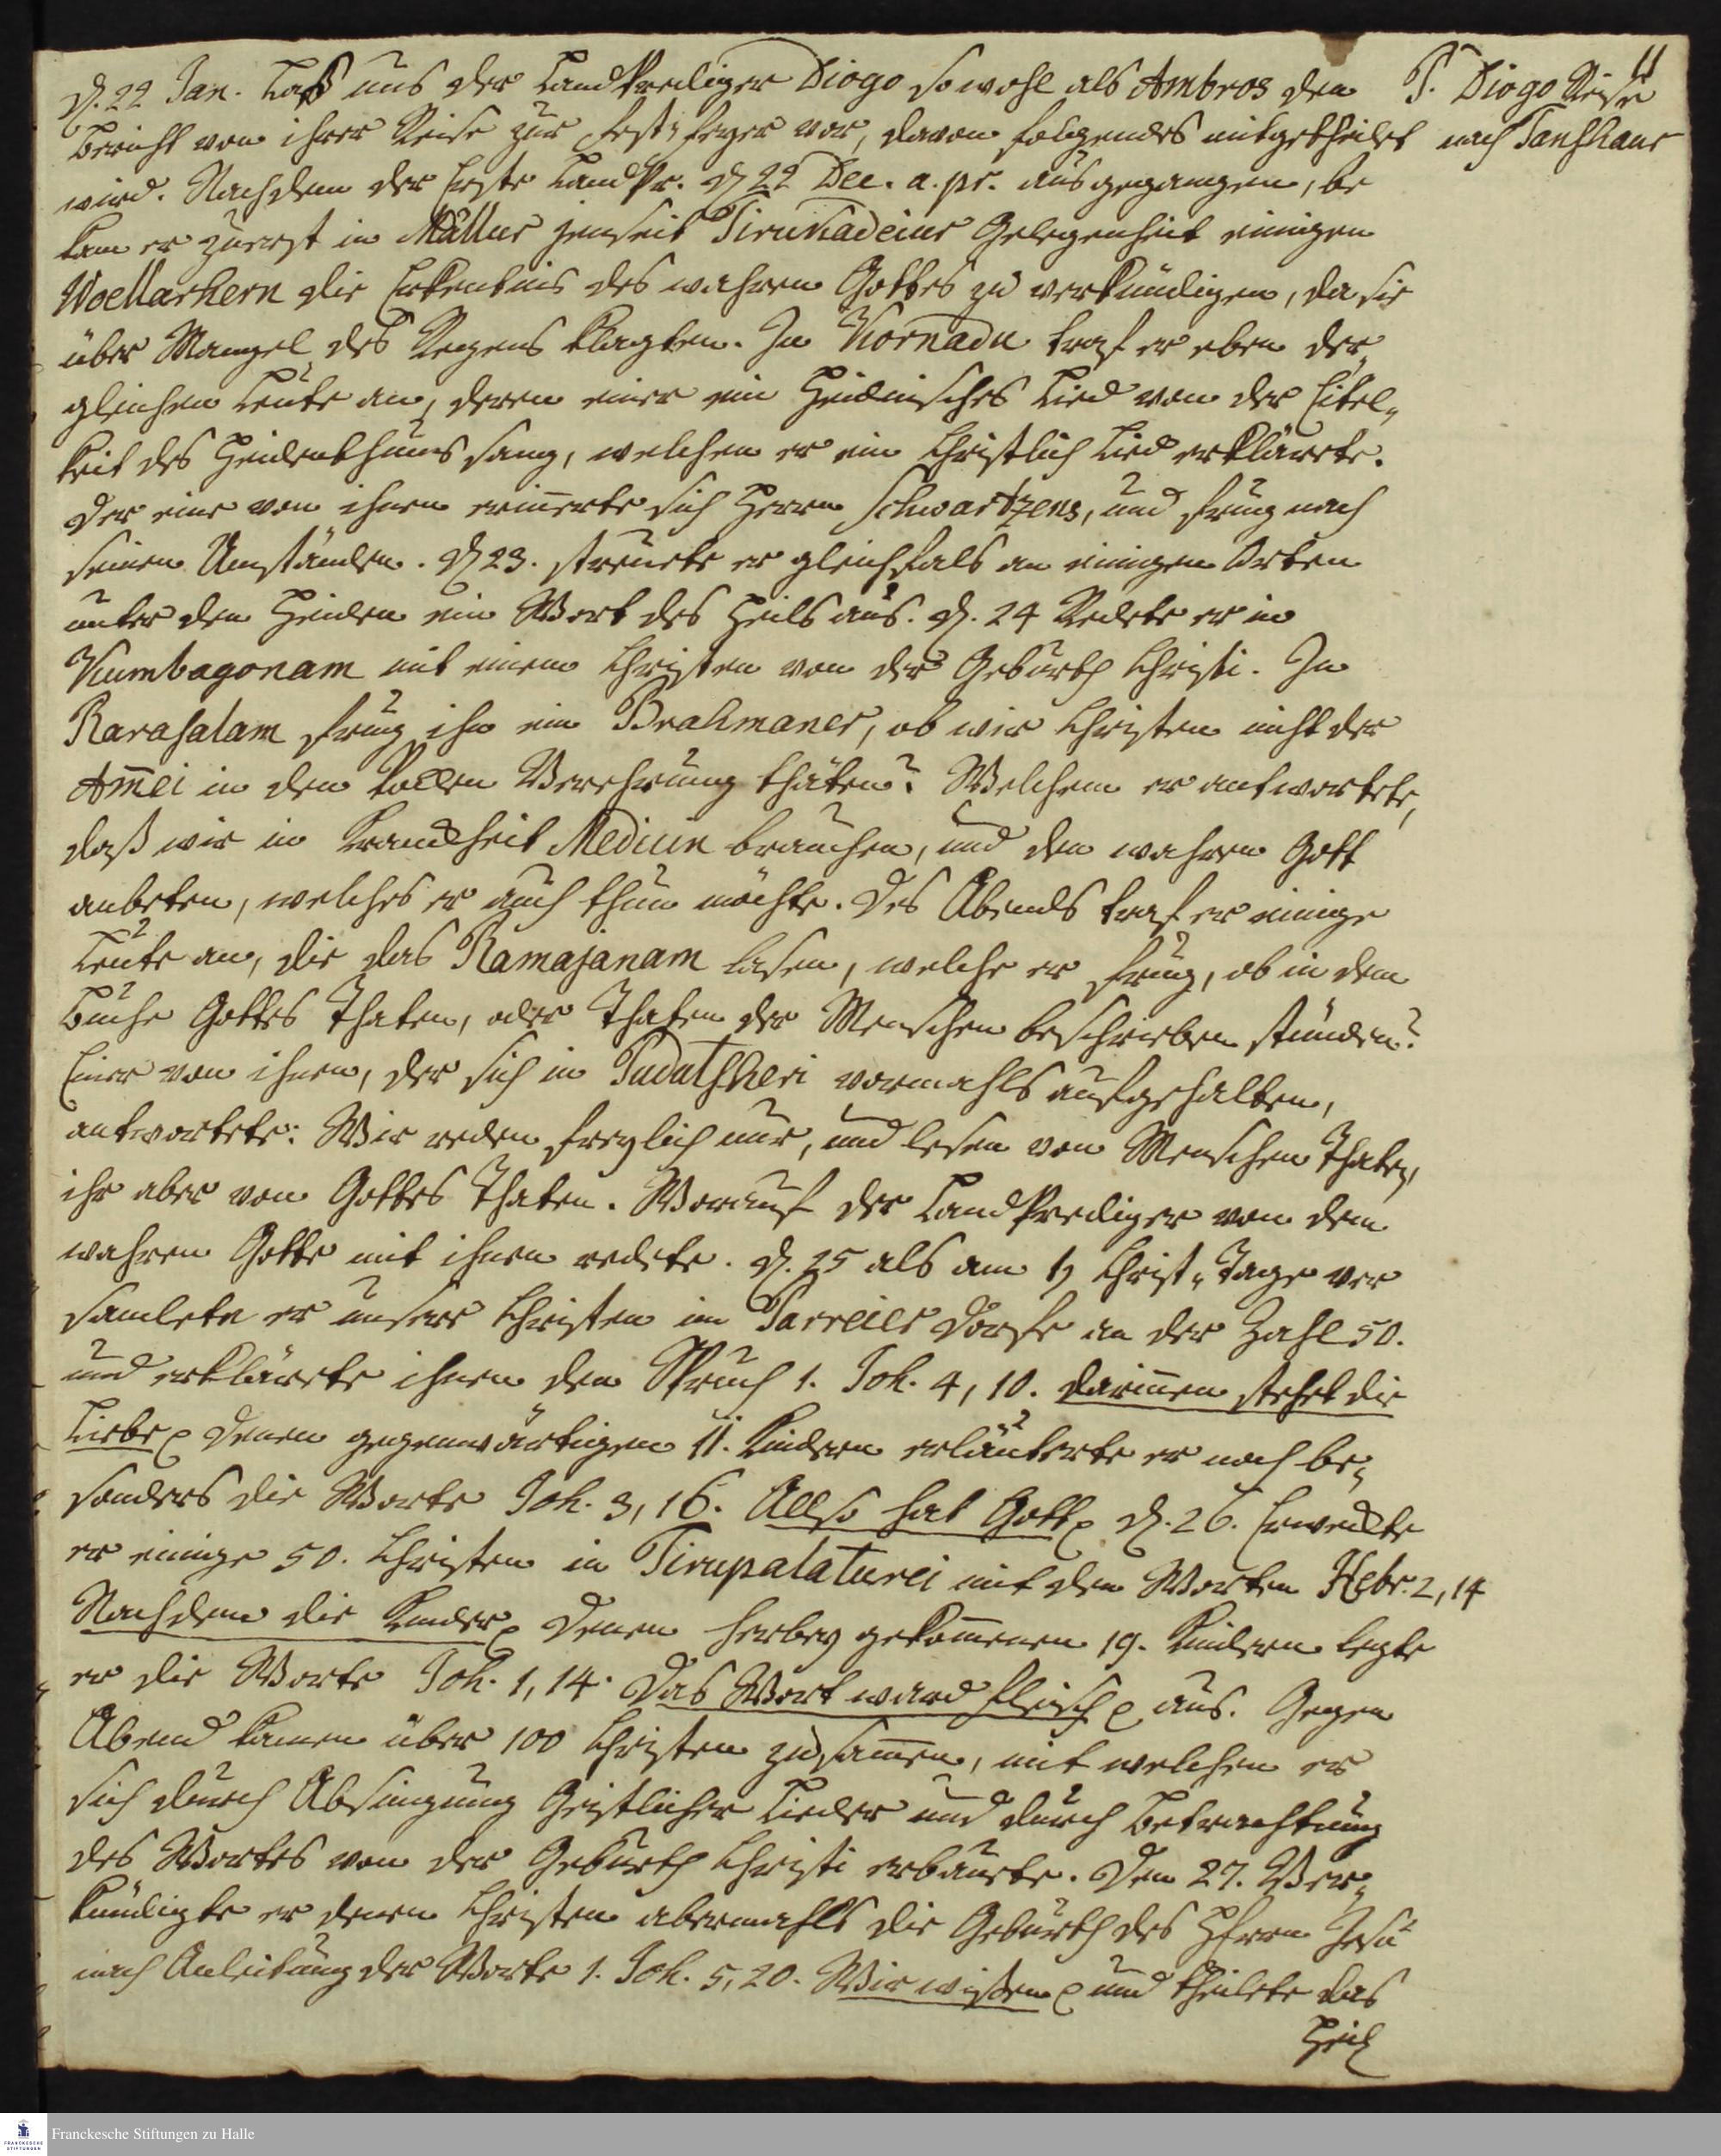 11
P. Diogo Reise
nach Tanschaur
d. 22 Jan. Laß uns der LandPrediger Diogo sowohl als Ambros den
Bericht von ihrer Reise zur Fest-feyer vor, davon folgendes mitgetheilet
wird. Nachdem der Erste LandPr. d 22 Dec. a. pr. ausgegangen, be
kam er zuerst in Mallur jenseit Tirukadeiur Gelegenheit einigen
Woellarhern die Erkentnis des wahren Gottes zu verkündigen, da sie
über Mangel des Regens klagten. In Kornadu traf er eben der,,
gleichen Leute an, deren einer ein Heidnisches Lied von der Eitel,,
keit des Heidenthums sang, welchen er ein Christlich Lied erklärete.
Der eine von ihnen erinnerte sich Herrn Schwartzens, und frug nach
seinen Umständen. d 23. streuete er gleichfals an einigen Orten
unter den Heiden ein Wort des Heils aus. d. 24 Redete er in
Kumbagonam mit einem Christen von der Geburth Christi. In
Rarasalam frug ihn ein Brahmaner, ob wir Christen nicht der
Ammei in den Pocken Verehrung thäten? Welchem er antwortete,
daß wir in Kranckheit Medicin brauchen, und den wahren Gott
anbeten, welches er auch thun möchte. Des Abends traf er einige
Leute an, die das Ramajanam lasen, welche er frug, ob in dem
Buche Gottes Thaten, oder Thaten der Menschen beschrieben stünden?
Einer von ihnen, der sich in Pudutscheri vormahls aufgehalten,
antwortete: Wir reden freylich nur, und lesen von Menschen Thaten,
ihr aber von Gottes Thaten. Worauf der LandPrediger von dem
wahren Gotte mit ihnen redete. d. 25 als am 1 Christ-Tage ver
samlete er unsere Christen im Parreier Dorfe an der Zahl 50.
und erklärete ihnen den Spruch 1. Joh. 4, 10. darinnen stehet die
Liebe p Denen gegenwärtigen 11. Kindern erläuterte er noch be,,
sonders die Worte Joh. 3, 16. Also hat Gott p d. 26. Erweckte
er einige 50. Christen in Tirupalaturei mit den Worten Hebr. 2, 14
Nachdem die Kinder p Denen herbey gekommenen 19. Kindern legte
er die Worte Joh. 1, 14. Das Wort ward Fleisch p aus. Gegen
Abend kamen über 100 Christen zusammen, mit welchen er
sich durch Absingung Geistlicher Lieder und durch Betrachtung
des Wortes von der Geburth Christi erbauete. Den 27. Ver,,
kündigte er denen Christen abermahls die Geburth des Herrn Jesu
nach Anleitung der Worte 1. Joh. 5, 20. Wir wißen p und theilete das
Heil
Franckesche Stiftungen zu Halle